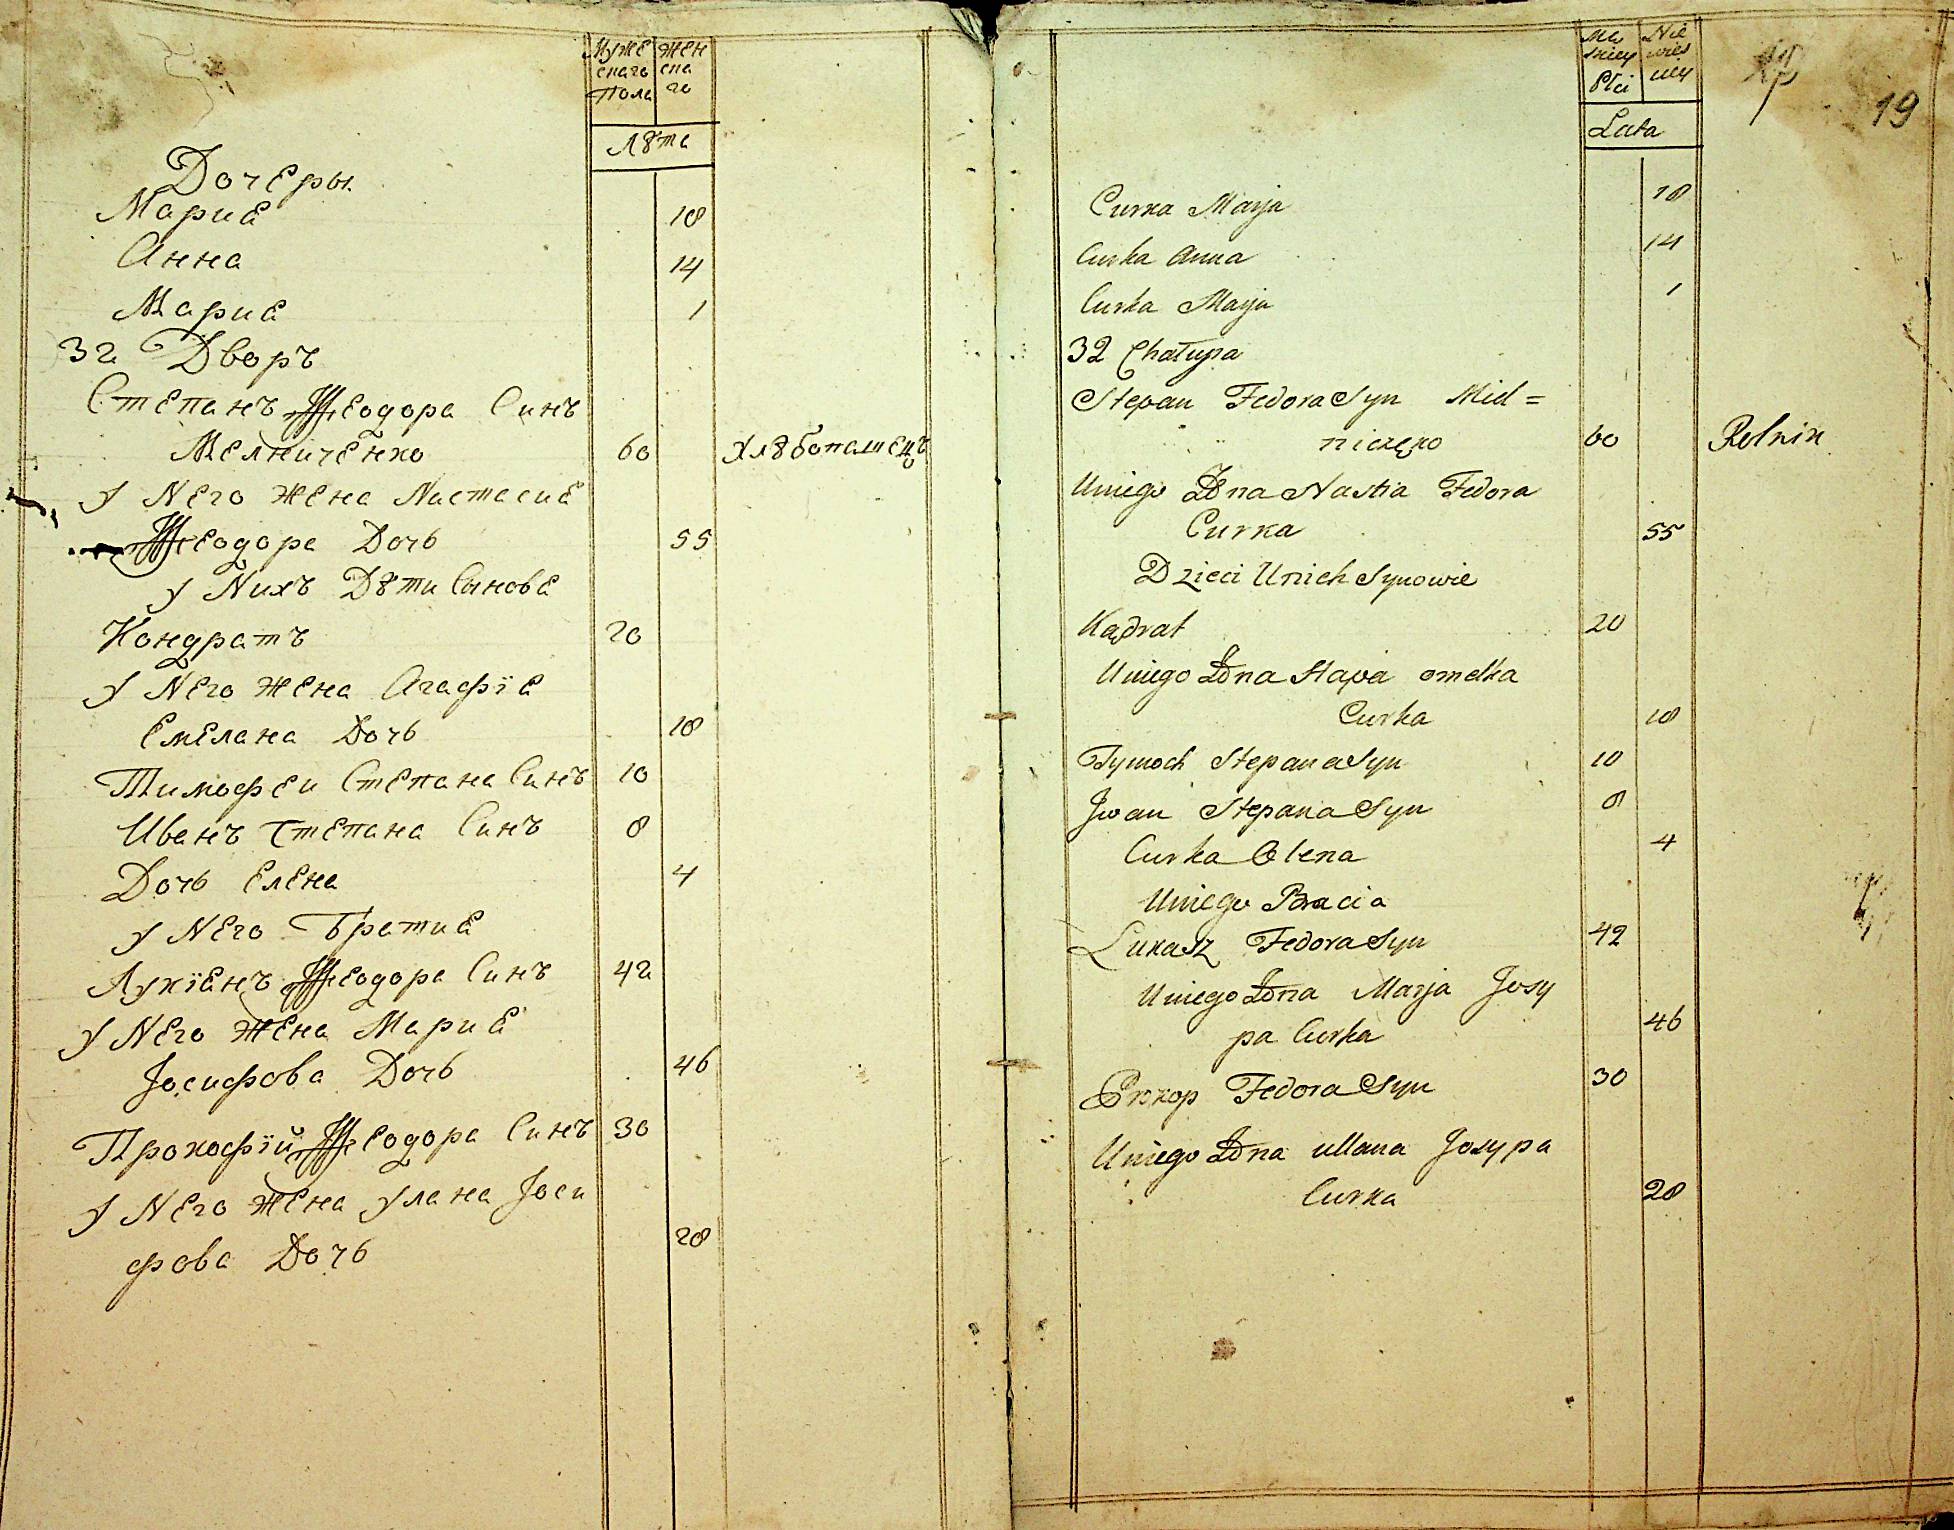 Муже Жен
скаго ска
Пола го
Лѣта
Дочеры
Марие 18
Анна 14
Марие 1
32 Дворъ
Степанъ Феодора Синъ
Мелниченко 60 Хлѣбопашецъ
У Него жена Настасие
Феодора Дочь 55
у Нихъ Дѣти Сынове
Кондратъ 20
У Него жена Агафїе
Емелана Дочь 18
Тимофеи Степана Синъ 10
Иванъ Степана Синъ 8
Дочь Елена 4
У Него Братие
Лукїенъ Феодора Синъ 42
У Него жена Марие
Іосифова Дочь 46
Прокофїй Феодора Синъ 30
У Него жена Улана Іоси
фова Дочь 28
Mę Nie
skiey wies
Płci ciey
19
Lata
Curka Marja 18
Curka Anna 14
Curka Marja 1
32 Chałupa
Stepan Fedora Syn Miel=
niczęko 60 Rolnik
Uniego Żona Nastia Fedora
Curka 55
Dzieci Unich Synowie
Kądrat 20
Uniego Żona Hapa omelka
Curka 18
Tymoch Stepana Syn 10
Jwan Stepana Syn 8
Curka Olena 4
Uniego Bracia
Lukasz Fedora Syn 42
Uniego Żona Marja Josy
pa Curka 46
Prokop Fedora Syn 30
Uniego Żona ullana Josypa
Curka 28